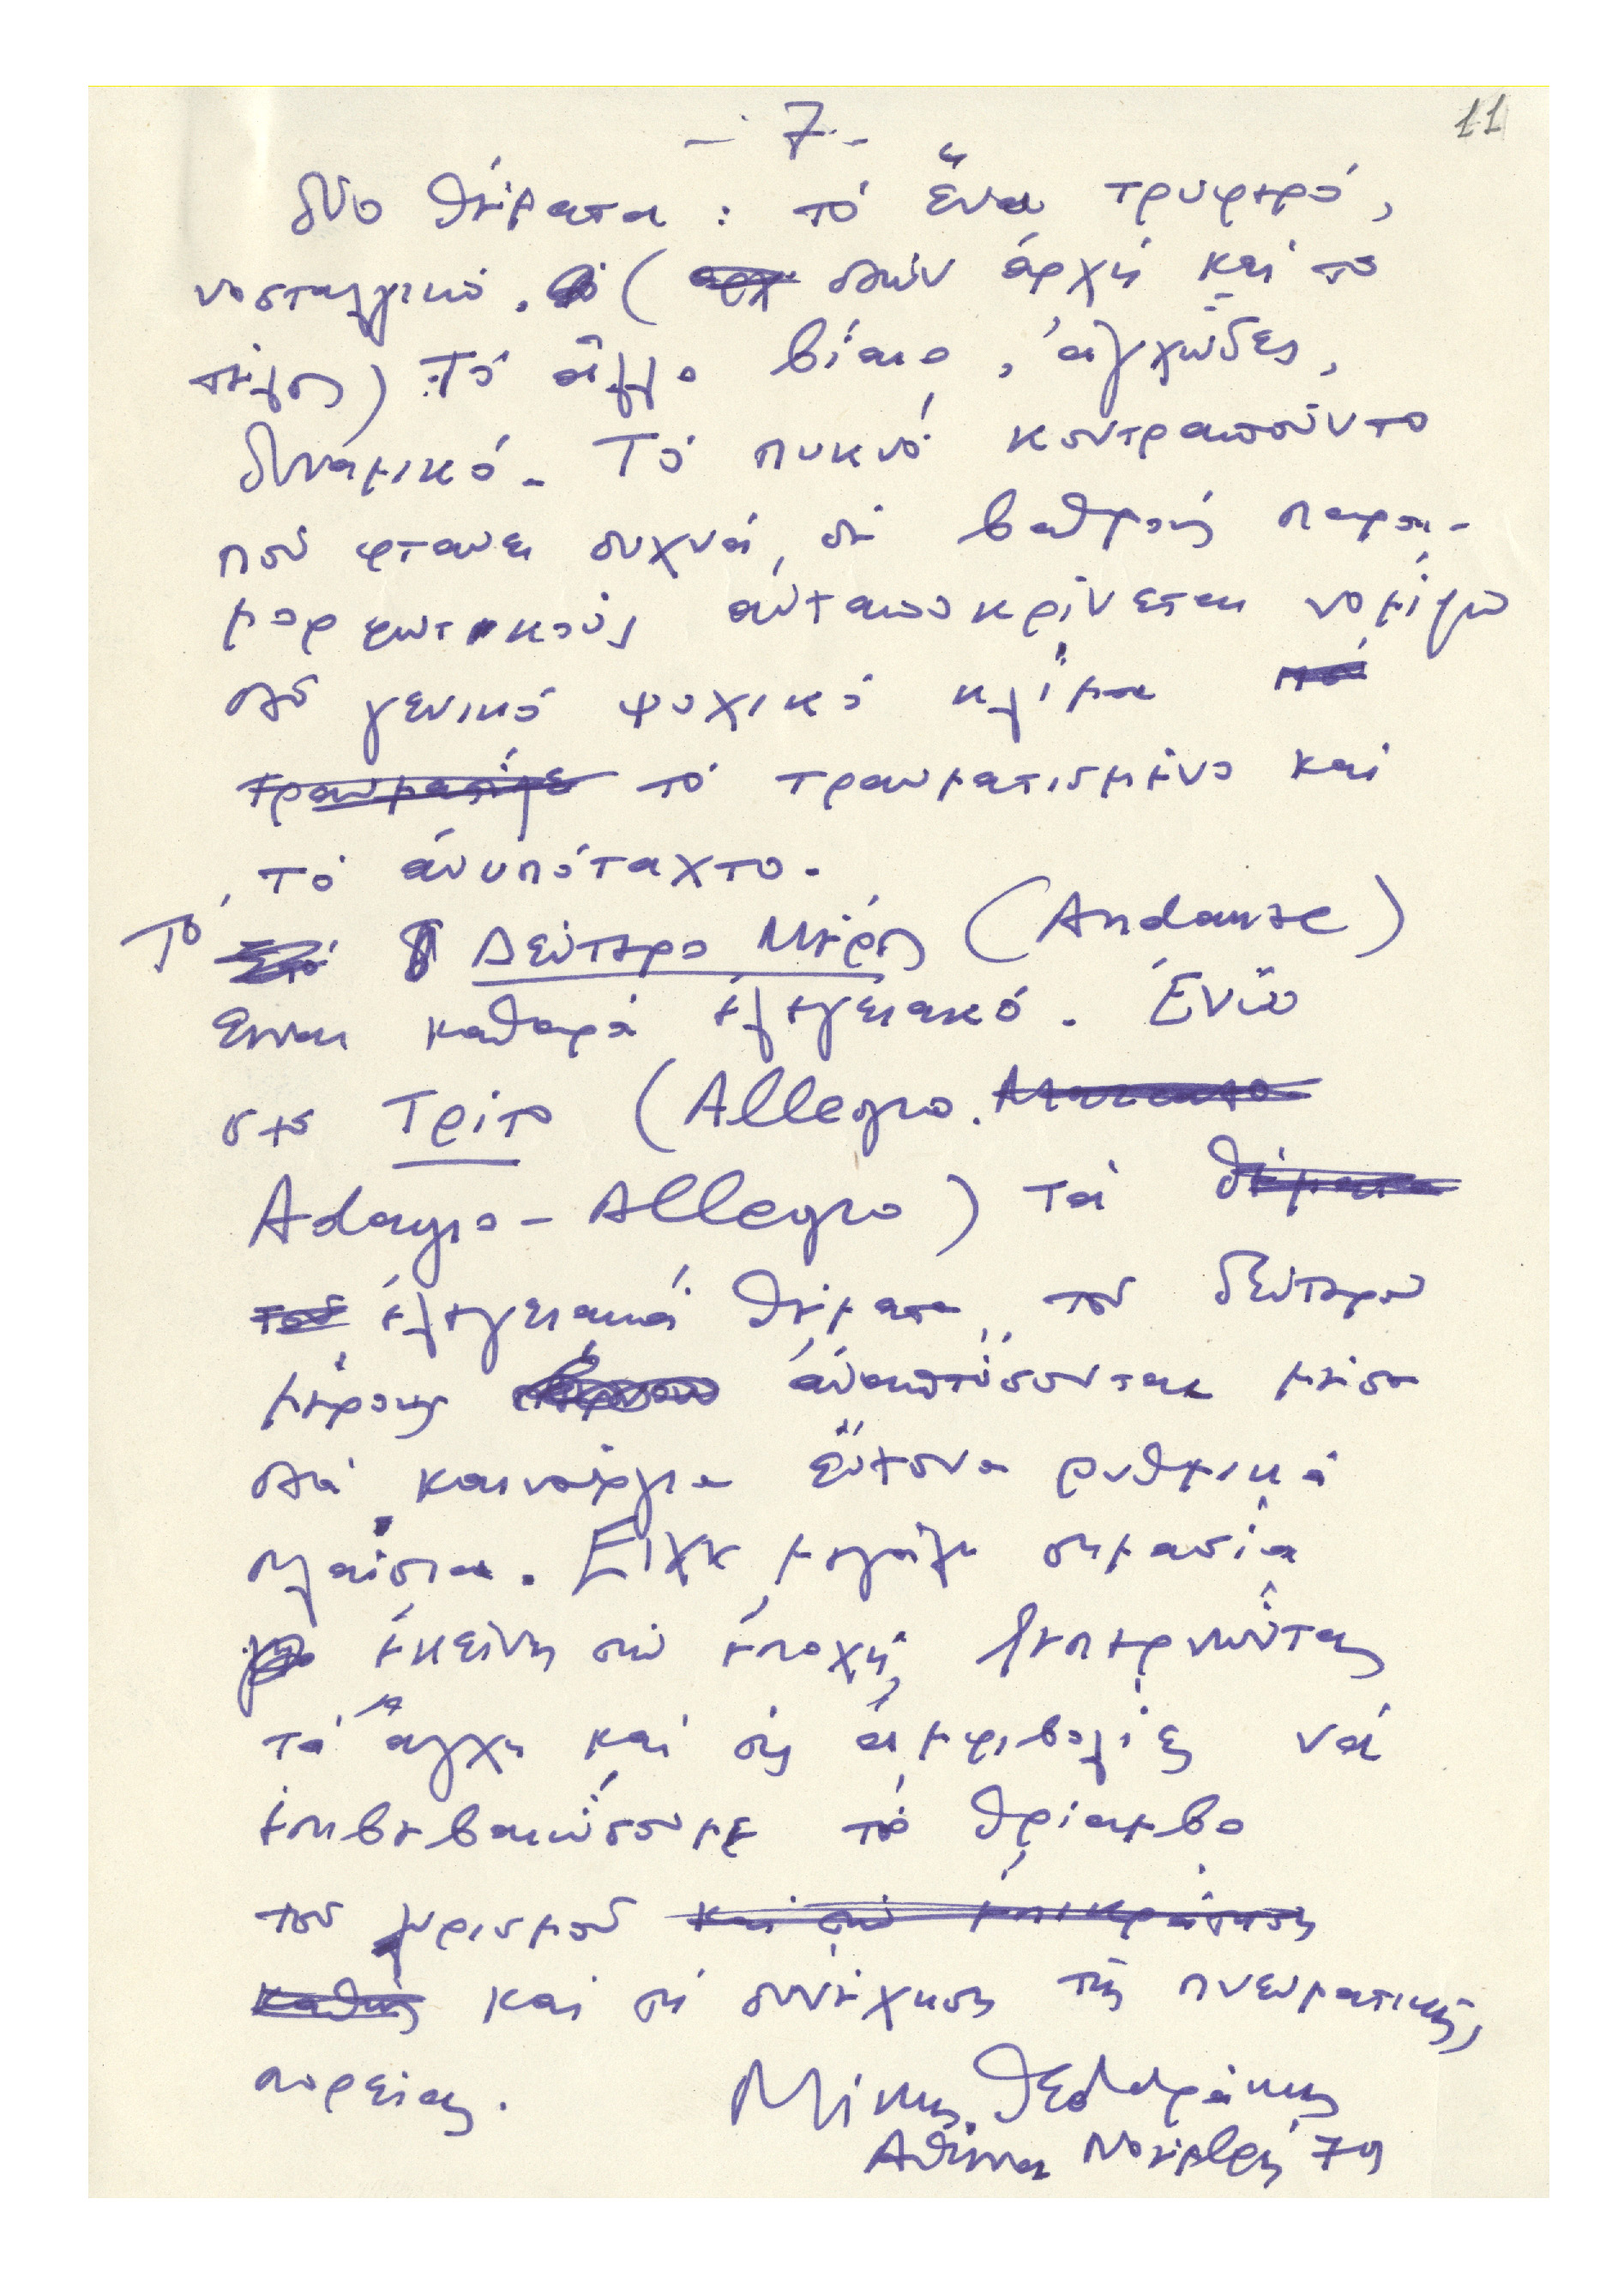 - 7 -
11
δύο θέματα : τό ἕνα τρυφερό,
νοσταλγικό. ( στήν ἀρχή καί τό
τέλος) Τό ἄλλο βίαιο, ἀγχῶδες,
δυναμικό. Τό πυκνό κοντραπούντο
πού φτάνει συχνά σέ βαθμούς παρα-
μορφωτικούς ἀνταποκρίνεται νομίζω
στό γενικό ψυχικό κλίμα πού
τραυμάτιζε τό τραυματισμένο καί
τό ἀνυπόταχτο.
Τό Δεύτερο Μέρος (Andante)
εἶναι καθαρά ἐλεγειακό. Ἐνῶ
στό Τρίτο (Allegro.
Adagio - Allegro) τά θέματα
τοῦ ἐλεγειακά θέματα τοῦ δεύτερου
μέρους ἀναπτύσσονται μέσα
στά καινούργια ἔντονα ρυθμικά
πλαίσια. Εἶχε μεγάλη σημασία
ἐκείνη τήν ἐποχή, ξεπερνῶντας
τά ἄγχη καί τίς ἀμφιβολίες νά
ἐπιβεβαιώσουμε τό θρίαμβο
τοῦ λυρισμοῦ καί τήν ἐπικράτηση
καθώς καί τή συνέχιση τῆς πνευματικῆς
πορείας. Μίκης Θεοδωράκης
Ἀθήνα Νοέμβρη 79